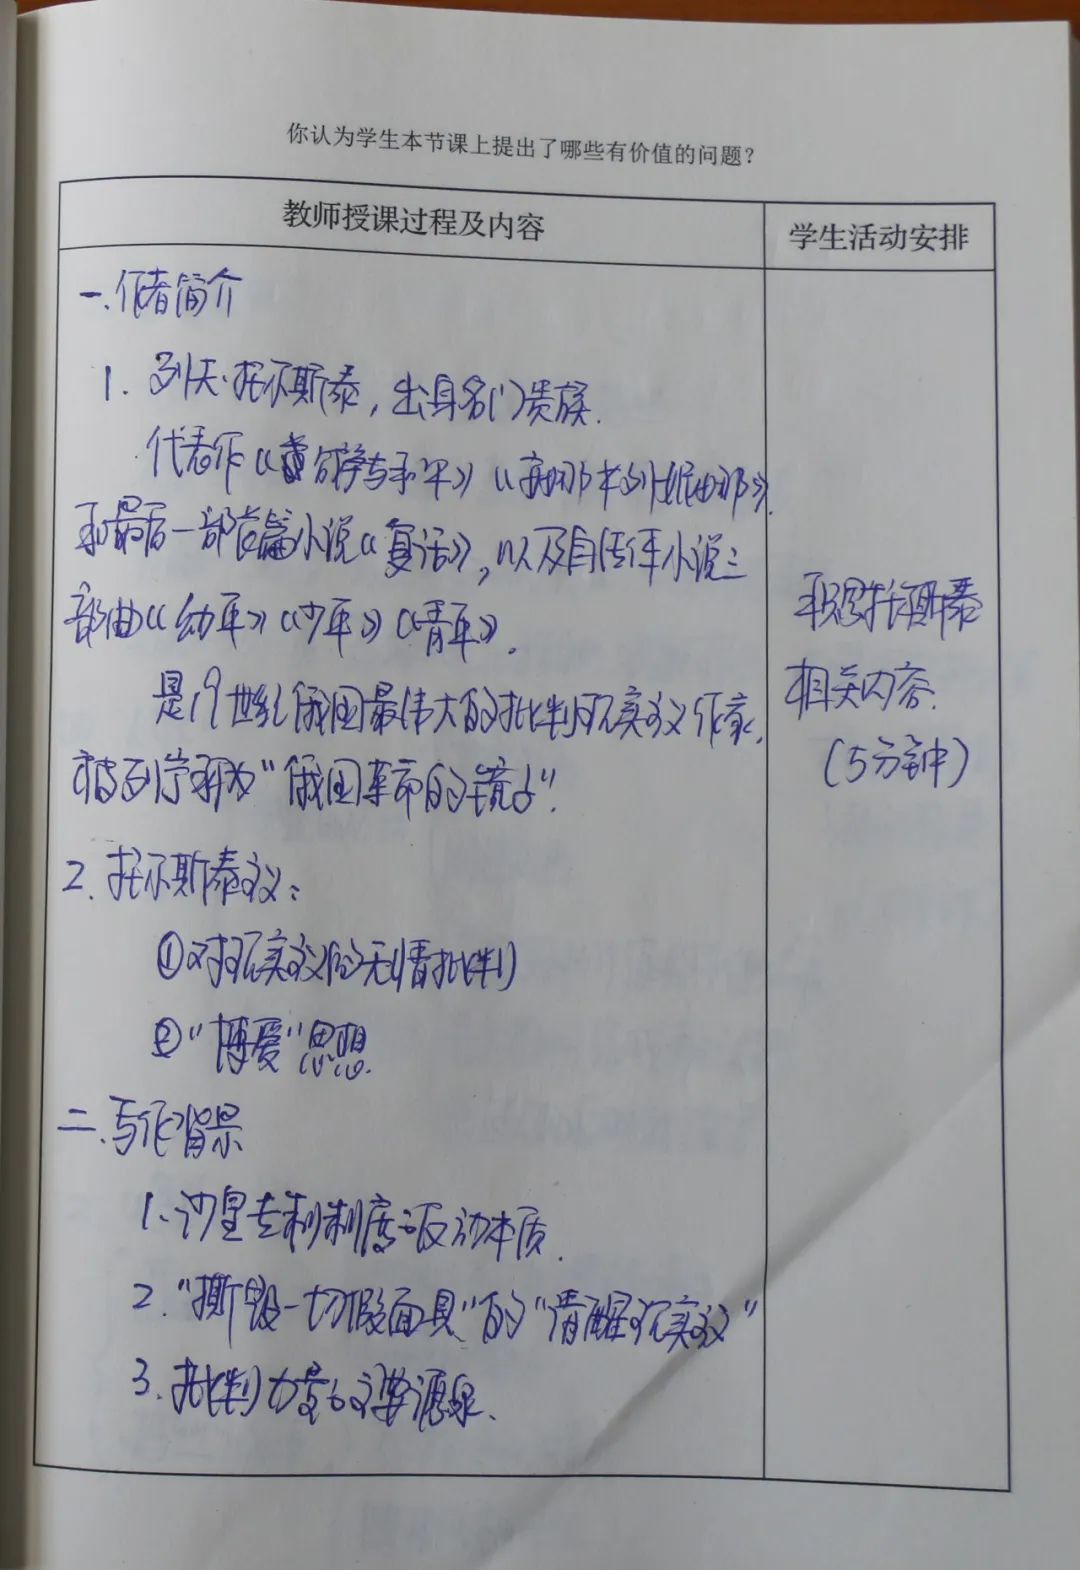 你认为学生本节课上提出了哪些有价值的问题？
教师授课过程及内容
学生活动安排
一.作者简介
1. 列夫·托尔斯泰，出身名门贵族.
代表作《战争与和平》《安娜·卡列尼娜》.
和最后一部长篇小说《复活》，以及自传体小说三
部曲《幼年》《少年》《青年》.
是19世纪俄国最伟大的批判现实主义作家.
被列宁称为“俄国革命的镜子”.
2. 托尔斯泰主义：
①对现实主义的无情批判
②“博爱”思想.
二.写作背景
1.沙皇专制制度的反动本质.
2.“撕毁一切假面具”的“清醒现实主义”
3.批判力量的主要源泉.
托尔斯泰
相关内容.
（5分钟）